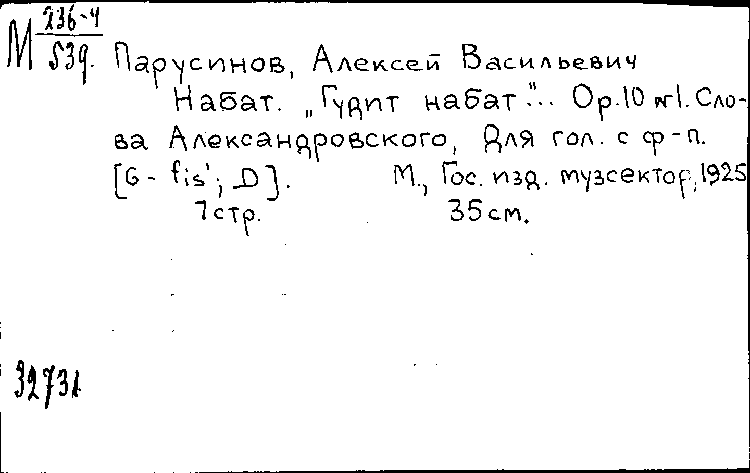 М 236-4
539.
Парусинов, Алексей Васильевич
Набат. „Гудит набат"... Op.10 №1. Сло-
ва Александровского, Для гол. с ф-п.
[G - fis'; D]. М., Гос. изд. музсектор, 1925
7 стр. 35 см.
32731